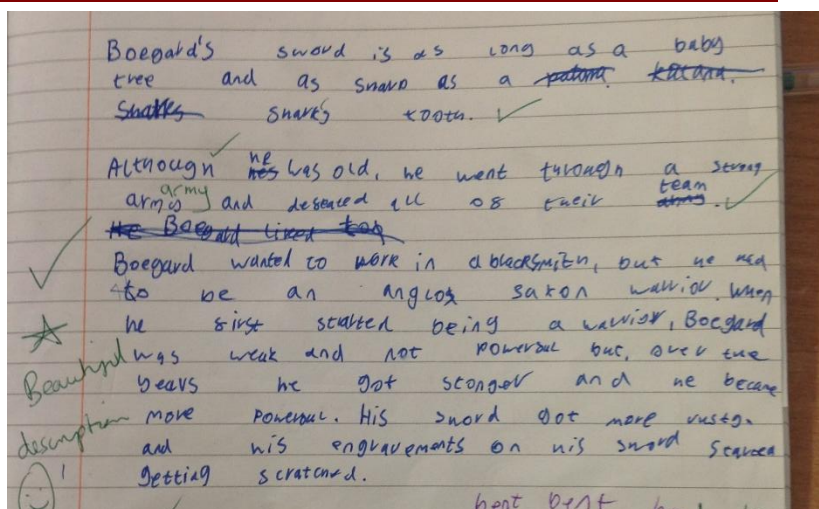 Boegard's sword is as long as a baby
tree and as sharp as a katana.
Sharks shark's tooth.
Although he was old, he went through a strong
army army and defeated all of their team
He Boegard liked to
Boegard wanted to work in a blacksmith, but he had
to be an anglos saxon warrior. When
he first started being a warrior, Boegard
Beautiful was weak and not powerful but, over the
years he got stonger and he became
description more powerful. His sword got more rusty.
and his engravements on his sword started
getting scratched.
bent bent